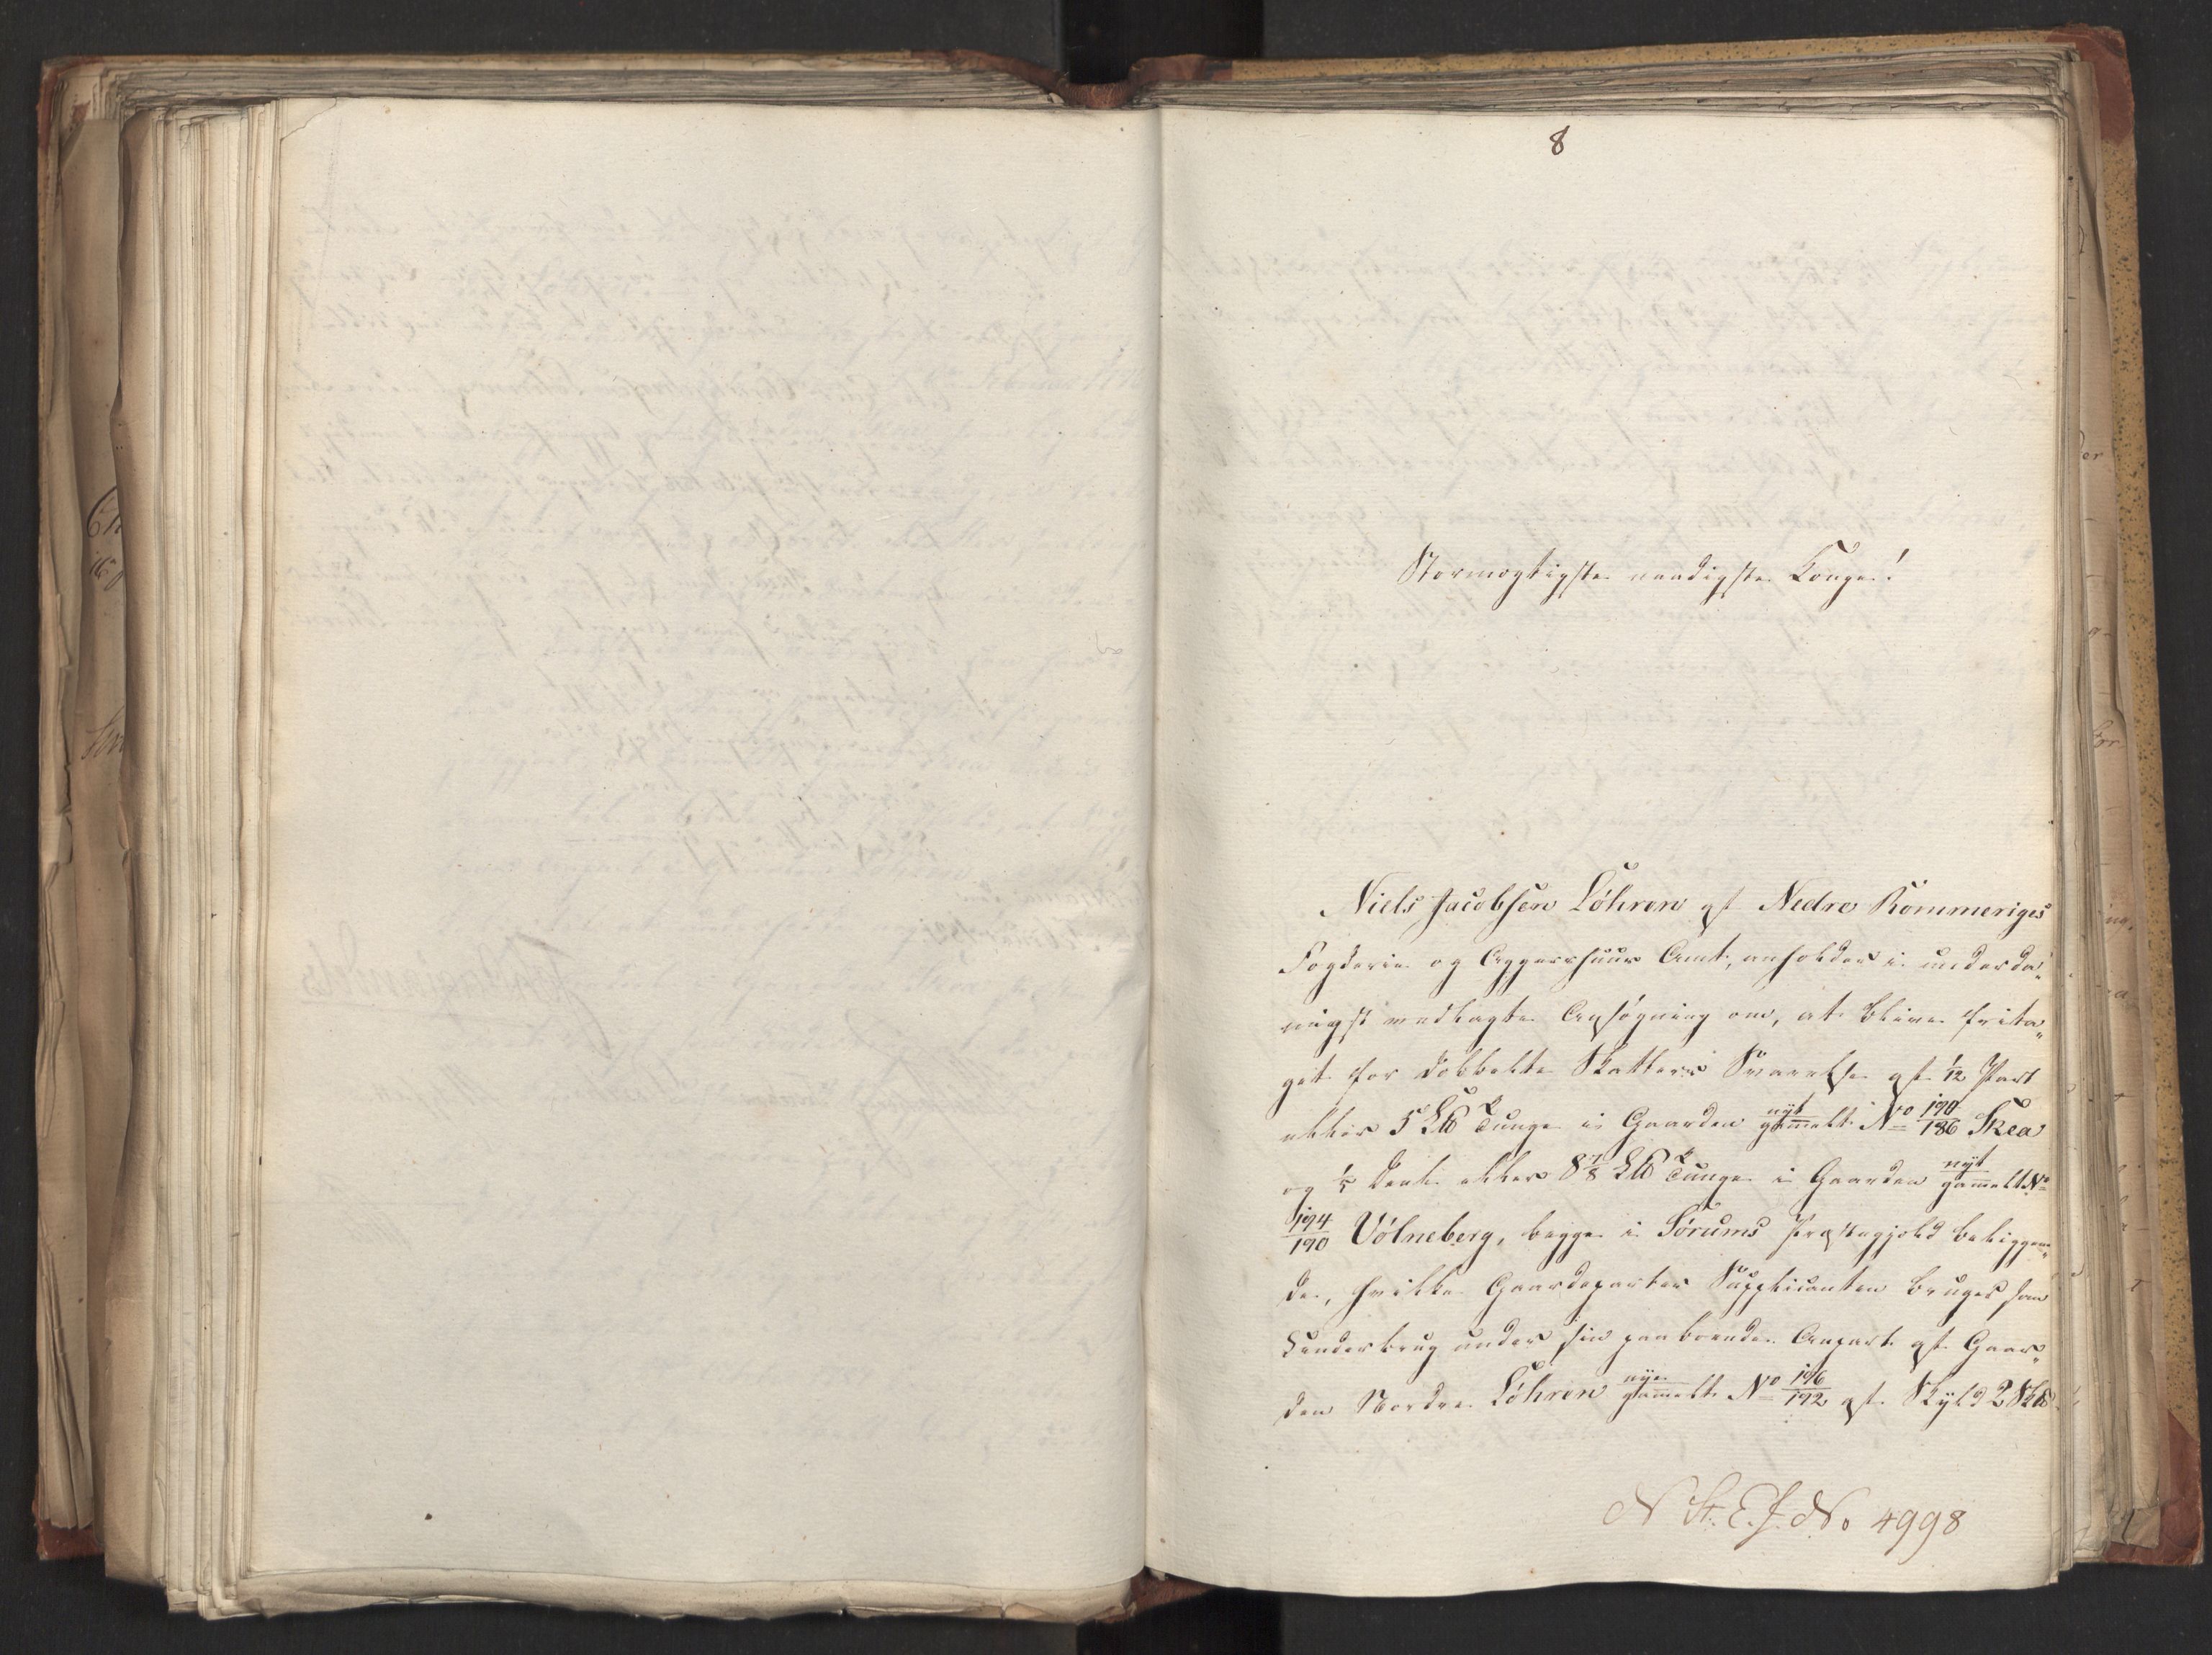 8
Stormægtigste naadigste Konge!
Niels Jacobsen Løhren af Nedre Rommeriges
Fogderie og Aggershuus Amt, anholder i underda„
nigst vedlagte Ansøgning om, at blive frita„
get for dobbelte Skatters Svarelse af 1/12 Part
eller 5 L℔ Tunge i Gaarden nyt/gammelt No 190/186 Skea
og 1/5 Deel eller 8 7/8 L℔ Tunge i Gaarden nyt/gammelt No
194/190 Vølneberg, begge i Sørums Præstegjeld beliggen„
de, hvilke Gaardeparter Supplicanten bruger som
Underbrug under sin paaboende Anpart af Gaar„
den Nordre Løhren nye/gammelt No 196/192 af Skyld 2 Sk℔
N St. E. J. No 4998